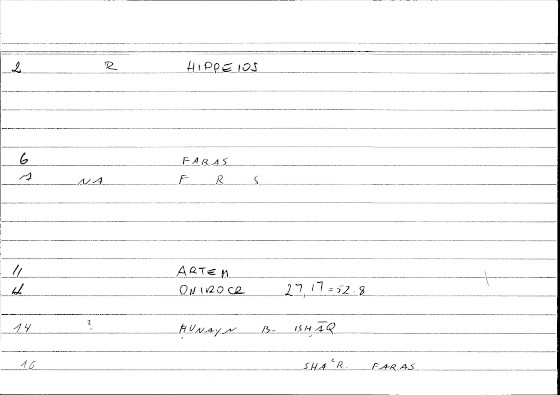 2 R HIPPEIOS
6 FARAS
1 NA F R S
11 ARTEM
4 ONIROCR 27,17=52.8
14 ? ḤUNAYN B- ISḤĀQ
16 SHAʿR FARAS